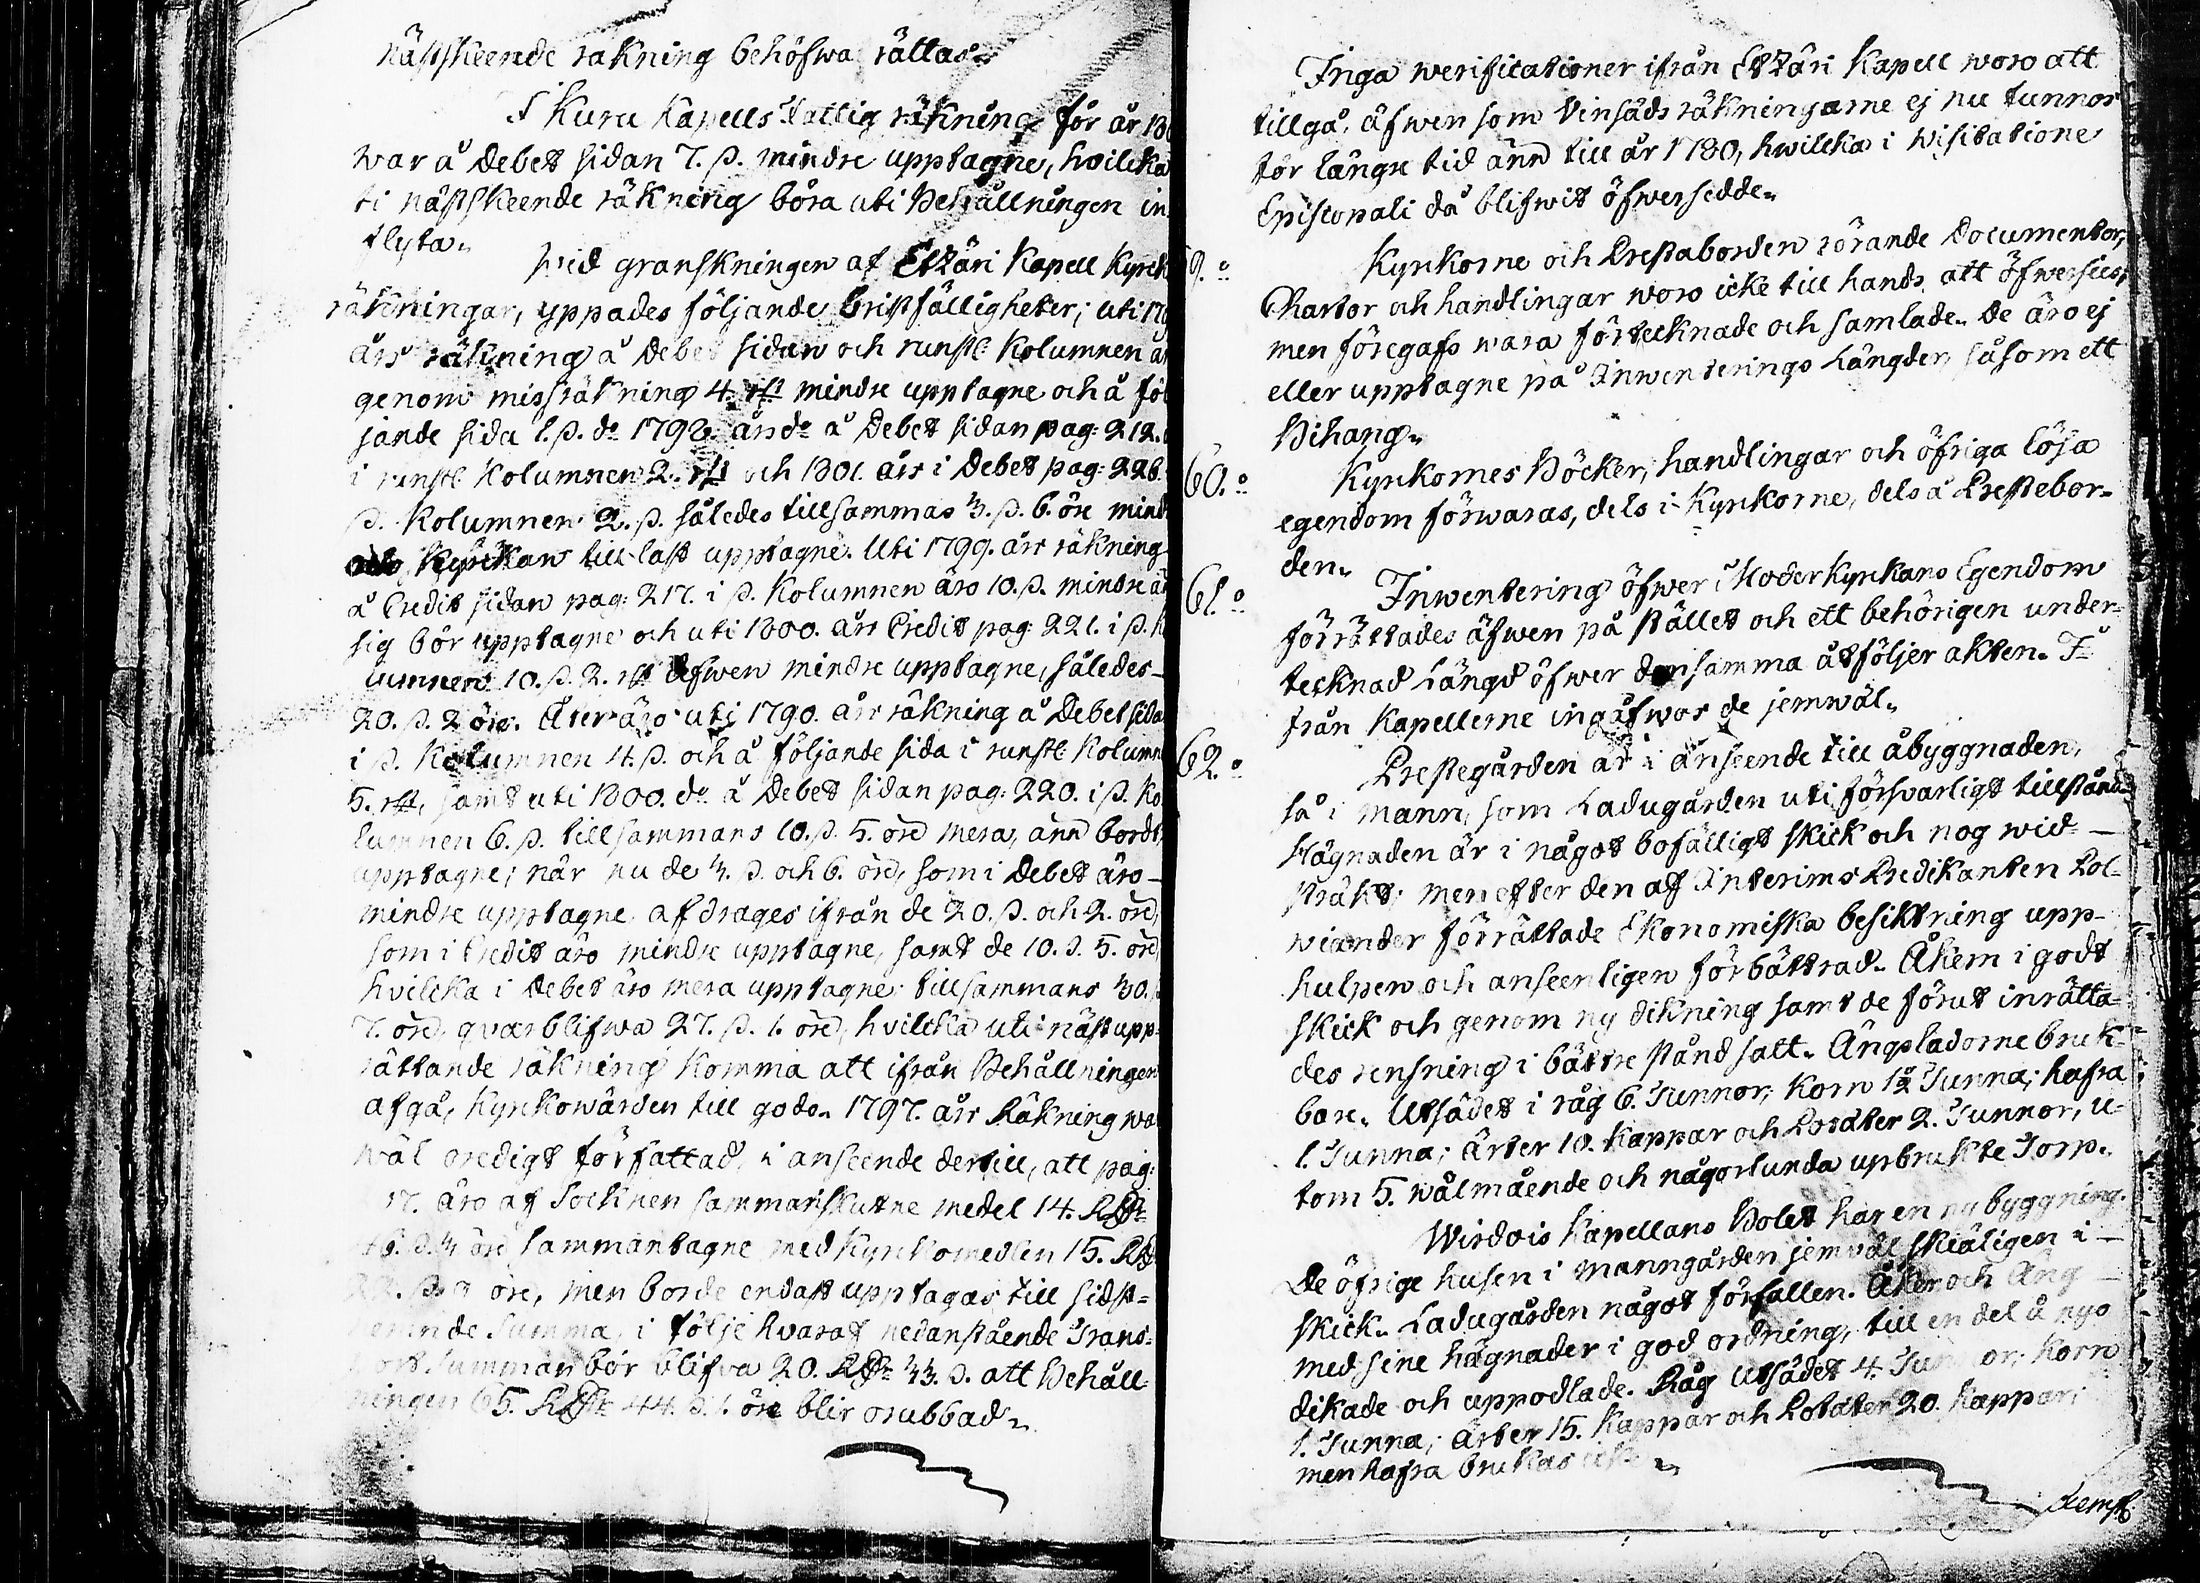 nästskeende räkning behöfwa rättas„
I Kuru Kapells Fattig räkning för år 180
war å Debet sidan 7. ß. mindre upptagne, hvilcka
ti nästskeende räkning böra uti Behållningen in
flyta„
Wid granskningen af Etzäri Kapell Kyrck
räkningar, yppades följande bristfälligheter; uti 179
års räkning å Debet sidan och runst: Kolumnen
genom missräkning 4. rst mindre upptagne och å föl
jande sida 1. ß. do 1798. års do å Debet sidan pag: 212.
i runst: Kolumnen 2. rst och 1801. års i Debet pag: 226.
ß. Kolumnen 2. ß. således tillsammas 3. ß. 6. öre mind
Kyrckan till last upptagne. Uti 1799. års räkning
å Credit sidan pag: 217. i ß. Kolumnen äro 10. ß. mindre än
sig bör upptagne och uti 1800. års Credit pag: 221. i ß. K
lumnen 10. ß. 2. rst äfwen mindre upptagne, således
20. ß. 2 öre. Åter äro uti 1790. års räkning å Debet sida
i ß. Kolumnen 4. ß. och å följande sida i runst: Kolumn
5. rst, samt uti 1800. do å Debet sidan pag: 220. i ß. Ko
lumnen 6. ß. tillsammans 10. ß. 5. öre mera, änn bordt
upptagne; när nu de 3. ß. och 6. öre, som i Debet äro
mindre upptagne afdrages ifrån de 20. ß. och 2. öre,
som i Credit äro mindre upptagne, samt de 10. ß. 5. öre
hvilcka i Debet äro mera upptagne: tillsammans 30. ß
7. öre, qvarblifwa 27. ß. 1. öre, hvilcka uti näst upp-
rättande räkning komma att ifrån Behållningen
afgå, Kyrkowärden till godo„ 1797. års Räkning wa
wäl oredigt författad, i anseende dertill, att pag:
17. äro af Socknen sammanskutne medel 14. RD:
46. ß. 3 öre sammantagne med Kyrkomedlen 15. RD
22. ß. 9 öre, men borde endast upptagas till sidst-
nämnde Summa, i följe hvaraf nedanstående Trans-
port Summan bör blifva 20. RD: 33. ß. att Behåll-
ningen 65. RD: 44. ß. 1. öre blir orubbad„
Inga werificationer ifrån Etzäri Kapell woro att
tillgå, äfwen som Vinsäds räkningarne ej nu funnos
för längre tid änn till år 1780, hwilcka i Wisitatione
Episcopali då blifwit öfwersedde„
59.o Kyrkorne och Prestaborden rörande Documenter,
Chartor och handlingar woro icke till hands att öfwerses,
men föregafs wara förtecknade och samlade„ De äro ej
eller upptagne på Inwenterings Längder, såsom ett
Bihang„
60.o Kyrkornes Böcker, handlingar och öfriga lösa
egendom förwaras, dels i Kyrkorne, dels å Prestebor-
den„
61.o Inwentering öfwer Moderkyrkans Egendom
förrättades äfwen på stället och ett behörigen under-
tecknad Längd öfwer densamma åtföljer akten. I
från Kapellerne ingåfwos de jemwäl„
62.o Prestegården är i anseende till åbyggnaden,
så i Mann, som Ladugården uti försvarligt tillstånd
Hägnaden är i något bofälligt skick och nog wid-
sträkt; men efter den af Interims Predikanten Pol-
wiander förrättade Ekonomiska besiktning upp-
hulpen och anseenligen förbättrad„ Åkern i godt
skick och genom ny dikning samt de förut inrätta-
des rensning i bättre stånd satt„ Ängsladorne bruk-
bare„ Utsädet i råg 6. Tunnor, Korn 1½ Tunna; hafra
1. Tunna; ärter 10. Kappar och Potäter 2. Tunnor, u-
tom 5. wälmående och någorlunda upbrukte Torp„
Wirdois Kapellans Bolet har en ny byggning.
De öfrige husen i manngården jemväl skiäligen i
skick„ Ladugården något förfallen. Åker och Äng
med sine hägnader i god ordning, till en del å nyo
dikade och uppodlade. Råg Utsädet 4. Tunnor, Korn
1. Tunna; ärter 15. Kappar och Potäter 20. Kappar;
men hafra brukas icke„